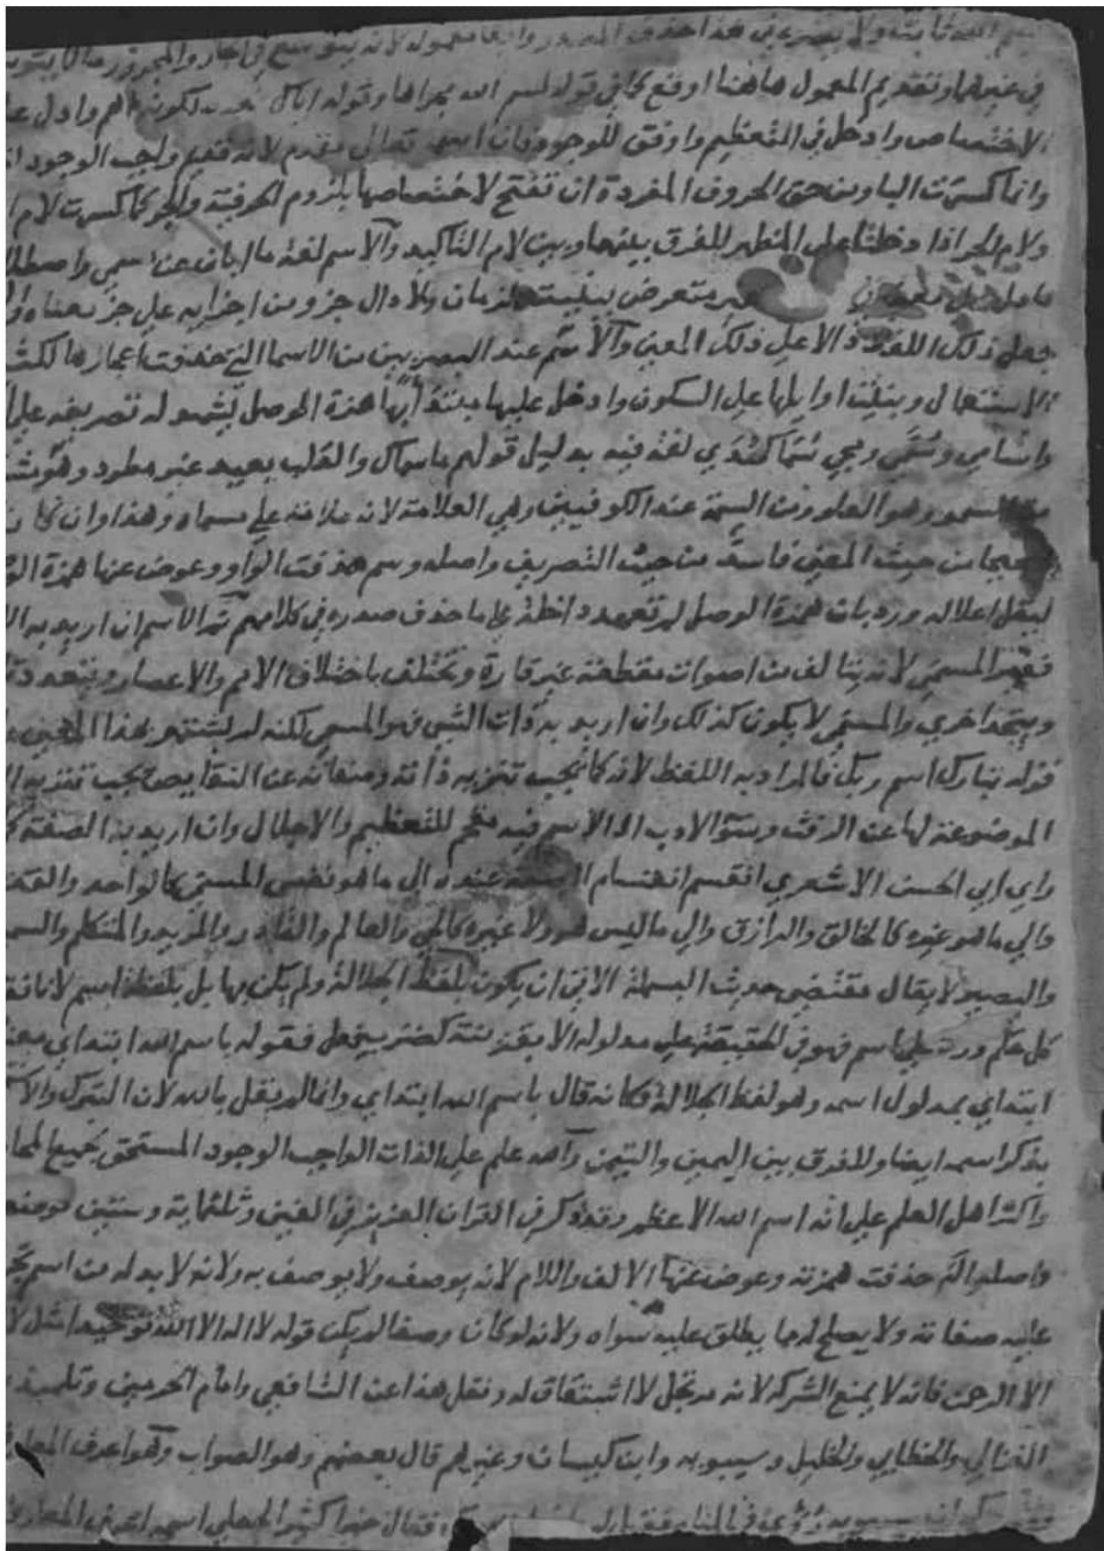 بسم الله ثابت ولا يضر في هذا حذف المصدر وابقا معموله لانه يتوسع في الجار والمجرور ما لا يتوسع
في غيرهما وتقديم المعمول هاهنا اوقع كما في قوله بسم الله مجراها وقوله اياك نعبد لكونه اهم وادل على
الاختصاص وادخل في التعظيم واوفق للوجود فان اسمه تعالى مقدم لانه قديم واجب الوجود
وانما كسرت الباو من حق الحروف المفردة ان تفتح لاختصاصها بلزوم الحرفية والجر كما كسرت لام
ولام الجر اذا دخلتا على المظهر للفرق بينهما وبين لام التاكيد والاسم لغة ما ابان عن مسمى واصطلاحا
ما دل على معنى غير متعرض ببنيته لزمان ولا دال جزء من اجزايه على جزء معناه
جعل ذلك اللفظ دالا على ذلك المعنى والاسم عند البصريين من الاسما التي حذفت اعجازها لكثرة
الاستعمال وبنيت اوايلها على السكون وادخل عليها مبتدأ بها همزة الوصل يشهد له تصريفه على
واسامي وسمي ومجي سما كهدي لغة فيه بدليل قولهم ما سماك والقلب بعيد غير مطرد
من السمو وهو العلو ومن السمة عند الكوفيين وهي العلامة لانه علامة على مسماه وهذا وان كان
صحيحا من حيث المعنى فاسد من حيث التصريف واصله وسم حذفت الواو وعوض عنها همزة
ليقل اعلاله ورد بان همزة الوصل لم تعهد داخلة على ما حذف صدره في كلامهم ثم الاسم ان اريد به
فغير المسمى لانه يتالف من اصوات مقطعة غير قارة وتختلف باختلاف الامم والاعصار ويتعدد تارة
ويتحد اخري والمسمى لا يكون كذلك وان اريد به ذات الشي فهو المسمى لكنه لم يشتهر بهذا المعنى
قوله تبارك اسم ربك فالمراد به اللفظ لانه كما يجب تنزيه ذاته وصفاته عن النقايص يجب تنزيه
الموضوعة لها عن الرفث وسوء الادب او الاسم فيه مقحم للتعظيم والاجلال وان اريد به الصفة
راي ابي الحسن الاشعري انقسم انقسام الصفة عنده الى ما هو نفس المسمى كالواحد والقديم
والي ما هو غيره كالخالق والرازق والي ما ليس هو ولا غيره كالحي والعالم والقادر والمريد والمتكلم والسميع
والبصير لا يقال مقتضى حديث البسملة الاتي ان يكون بلفظ الجلالة ولم يكن بها بل بلفظ اسم لانا نقول
كل حكم ورد على اسم فهو في الحقيقة على مدلوله الا بقرينة كضرب فعل فقوله باسم الله ابتداي
ابتداي بمدلول اسمه وهو لفظ الجلالة فكانه قال باسم الله ابتداي وانما لم يقل بالله لان التبرك
بذكر اسمه ايضا وللفرق بين اليمين والتيمن والله علم على الذات الواجب الوجود المستحق لجميع المحامد
واكثر اهل العلم على انه اسم الله الاعظم وقد ذكر في القران العزيز في الفين وثلثماية وستين موضعا
واصله اله حذفت همزته وعوض عنها الالف واللام لانه يوصف ولا يوصف به ولانه لا بد له من اسم تجري
عليه صفاته ولا يصلح له مما يطلق عليه سواه ولانه لو كان وصفا لم يكن قوله لا اله الا الله توحيدا مثل لا
الا الرحمن فانه لا يمنع الشركة لانه مرتجل لا اشتقاق له ونقل هذا عن الشافعي وامام الحرمين وتلميذه
الغزالي والخطابي والخليل وسيبويه وابن كيسان وغيرهم قال بعضهم وهو الصواب وهو اعرف المعارف
سيبويه رؤي في المنام فقيل فقال خيرا كثيرا لجعلي اسمه اعرف المعارف